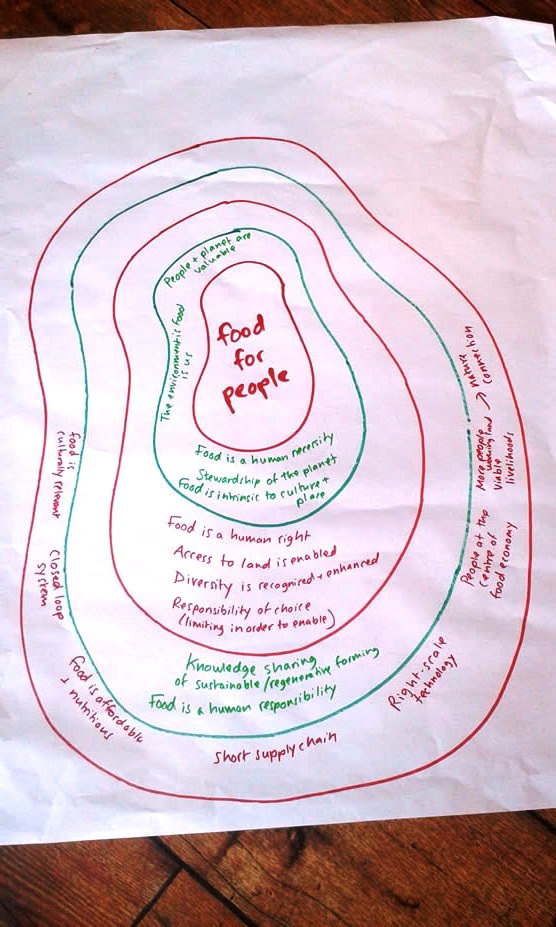 food
for
people
People + planet are
valuable
The environment is food
is us
Food is a human necessity
Stewardship of the planet
Food is intrinsic to culture +
place
Food is a human right
Access to land is enabled
Diversity is recognized + enhanced
Responsibility of choice
(limiting in order to enable)
Knowledge sharing
of sustainable/regenerative farming
Food is a human responsibility
Food is
culturally relevant
Closed loop
system
Food is affordable
+ nutritious
Short supply chain
Right-scale
technology
People at the
centre of
food economy
More people → nature
working land connection
Viable
livelihoods